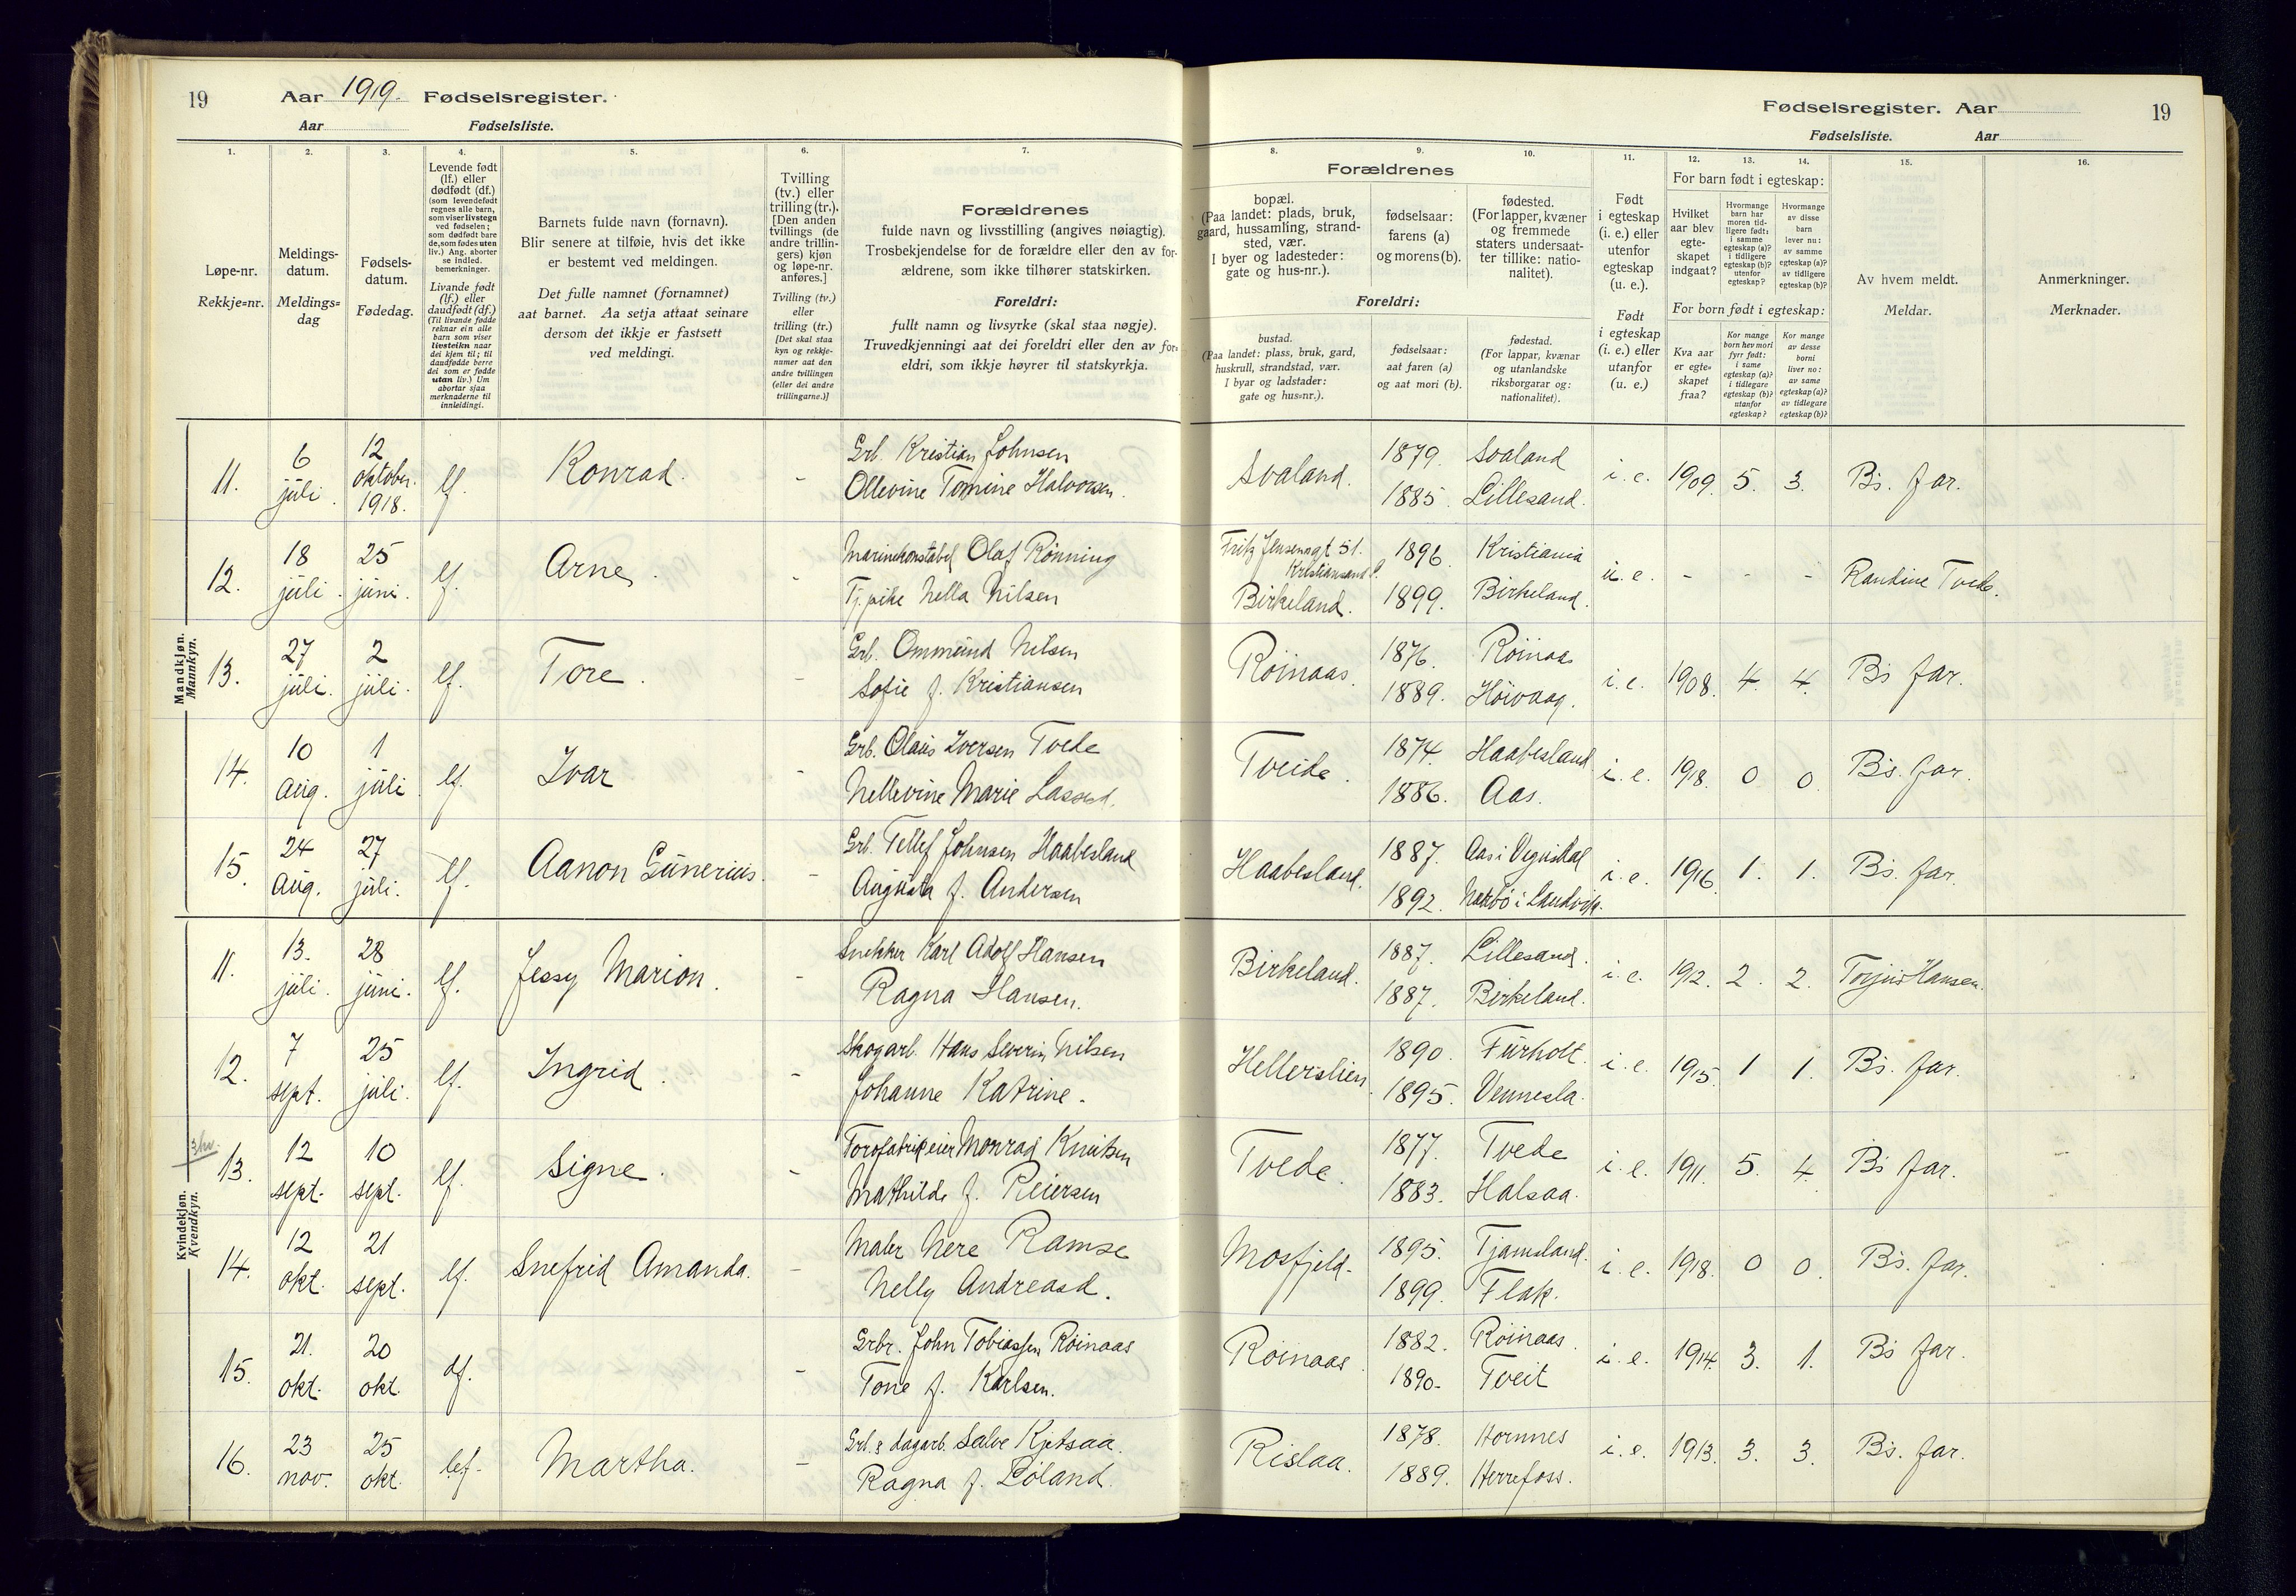 19 Aar 1919. Fødselsregister.
Aar Fødselsliste.
1. 2. 3. 4. 5. 6. 7.
Løpe-nr.
Rekkje=nr.
Meldings-
datum.
Meldings=
dag
Fødsels-
datum.
Fødedag.
Levende født
(lf.) eller
dødfødt (df.)
(som levendefødt
regnes alle barn,
som viser livstegn
ved fødselen;
som dødfødt bare
de, som fødes uten
liv.) Ang. aborter
se indled.
bemerkninger.
Livande født
(lf.) eller
daudfødt (df.)
(Til livande fødde
reknar ein alle
barn som viser
livsteikn naar
dei kjem til; til
daudfødde berre
dei som er fødde
utan liv.) Um
abortar sjaa
merknaderne til
innleidingi.
Barnets fulde navn (fornavn).
Blir senere at tilføie, hvis det ikke
er bestemt ved meldingen.
Det fulle namnet (fornamnet)
aat barnet. Aa setja attaat seinare
dersom det ikkje er fastsett
ved meldingi.
Tvilling
(tv.) eller
trilling (tr.).
[Den anden
tvillings (de
andre trillin-
gers) kjøn
og løpe-nr.
anføres.]
Tvilling (tv.)
eller
trilling (tr.)
[Det skal staa
kyn og rekkje-
numer aat den
andre tvillingen
(eller dei andre
trillingarne.)]
Forældrenes
fulde navn og livsstilling (angives nøiagtig).
Trosbekjendelse for de forældre eller den av for-
ældrene, som ikke tilhører statskirken.
Foreldri:
fullt namn og livsyrke (skal staa nøgje).
Truvedkjenningi aat dei foreldri eller den av for=
eldri, som ikkje høyrer til statskyrkja.
Fødselsregister. Aar 19
Fødselsliste. Aar
8. 9. 10. 11. 12. 13. 14. 15. 16.
Forældrenes
bopæl.
(Paa landet: plads, bruk,
gaard, hussamling, strand-
sted, vær.
I byer og ladesteder:
gate og hus-nr.).
fødselsaar:
farens (a)
og morens (b).
fødested.
(For lapper, kvæner
og fremmede
staters undersaat-
ter tillike: natio-
nalitet).
Foreldri:
bustad.
(Paa landet: plass, bruk, gard,
huskrull, strandstad, vær.
I byar og ladstader:
gate og hus=nr.).
fødselsaar:
aat faren (a)
og aat mori (b).
fødestad.
(For lappar, kvænar
og utanlandske
riksborgarar og:
nationalitet).
Født
i egteskap
(i. e.) eller
utenfor
egteskap
(u. e.).
Født
i egteskap
(i. e.) eller
utanfor
(u. e.)
For barn født i egteskap:
Hvilket
aar blev
egte-
skapet
indgaat?
Hvormange
barn har
moren tid-
ligere født:
i samme
egteskap (a)?
i tidligere
egteskap (b)?
utenfor
egteskap?
Hvormange
av disse
barn
lever nu:
av samme
egteskap (a)?
av tidligere
egteskap (b)?
For born født i egteskap:
Kva aar
er egte=
skapet
fraa?
Kor mange
born hev mori
fyrr født:
i same
egteskap (a)?
i tidlegare
egteskap (b)?
utanfor
egteskap?
Kor mange
av desse
borni
liver no:
av same
egteskap (a)?
av tidlegare
egteskap (b)?
Av hvem meldt.
Meldar.
Anmerkninger.
Merknader.
Mandkjøn.
Mannkyn.
11. 6 juli. 12 oktober. 1918. lf. Konrad. - Grb. Kristian Johnsen
Ollevine Tomine Halvorsen. Svaland. 1879. Svaland
1885. Lillesand. i. e. 1909. 5. 3. Bs. far.
12. 18 juli. 25 juni. lf. Arne. - Marinekonstabel Olaf Rönning
Tj.pike Nella Nilsen Fritz Jensensgt 51.
Kristiansand S.
Birkeland. 1896. Kristiania
1899. Birkeland. u. e. - - - Randine Tvede.
13. 27 juli. 2 juli. lf. Tore. - Grb. Ommund Nilsen
Sofie f. Kristiansen Röinaas. 1876. Röinaas
1889. Höivaag. i. e. 1908. 4. 4. Bs far.
14. 10 Aug. 1 juli lf. Ivar - Grb. Olaus Iversen Tvede
Nellevine Marie Lassesd. Tveide. 1874. Haabesland
1886. Aas. i. e. 1918. 0 0. Bs. far.
15. 24 Aug. 27 juli. lf. Aanon Gunerius. - Grb. Tellef Johnsen Haabesland
Augusta f. Andersen Haabesland. 1887. Aas i Vegusdal
1892. i Landvik. i. e. 1916. 1. 1. Bs. far.
Kvindekjøn.
Kvendkyn.
11. 13. juli. 28 juni. lf. Jessy Marion. - Snekker Karl Adolf Hansen
Ragna Hansen. Birkeland. 1887. Lillesand.
1887. Birkeland. i. e. 1912. 2. 2. Torjus Hansen.
12. 7 sept. 25 juli. lf. Ingrid. - Skogarb. Hans Severin Nilsen
Johanne Katrine. Hellerslien. 1890. Furholt.
1895. Vennesla. i. e. 1915. 1 1. Bs. far.
13. 12 sept. 10 sept. lf. Signe. - Torvfabrikeier Monrad Knutsen
Mathilde f. Reiersen Tvede. 1877. Tvede
1883. Halsaa. i. e. 1911. 5. 4. Bs far.
14. 12 okt. 21 sept. lf. Snefrid Amanda. - Maler Nere Ramse
Nelly Andreasd. Mosfjeld. 1895. Tjamsland.
1899. Flak. i. e. 1918. 0 0. Bs. far.
15. 21. okt. 20 okt. df. - Grbr. John Tobiassen Röinaas
Tone f. Karlsen. Röinaas 1882. Röinaas.
1890. Tveit i. e. 1914. 3. 1. Bs far.
16. 23 nov. 25 okt. lef. Martha. - Grb. & dagarb. Salve Kjetsaa.
Ragna f. Löland. Rislaa. 1878. Hornnes
1889. Herrefoss. i. e. 1913. 3. 3. Bs. far.